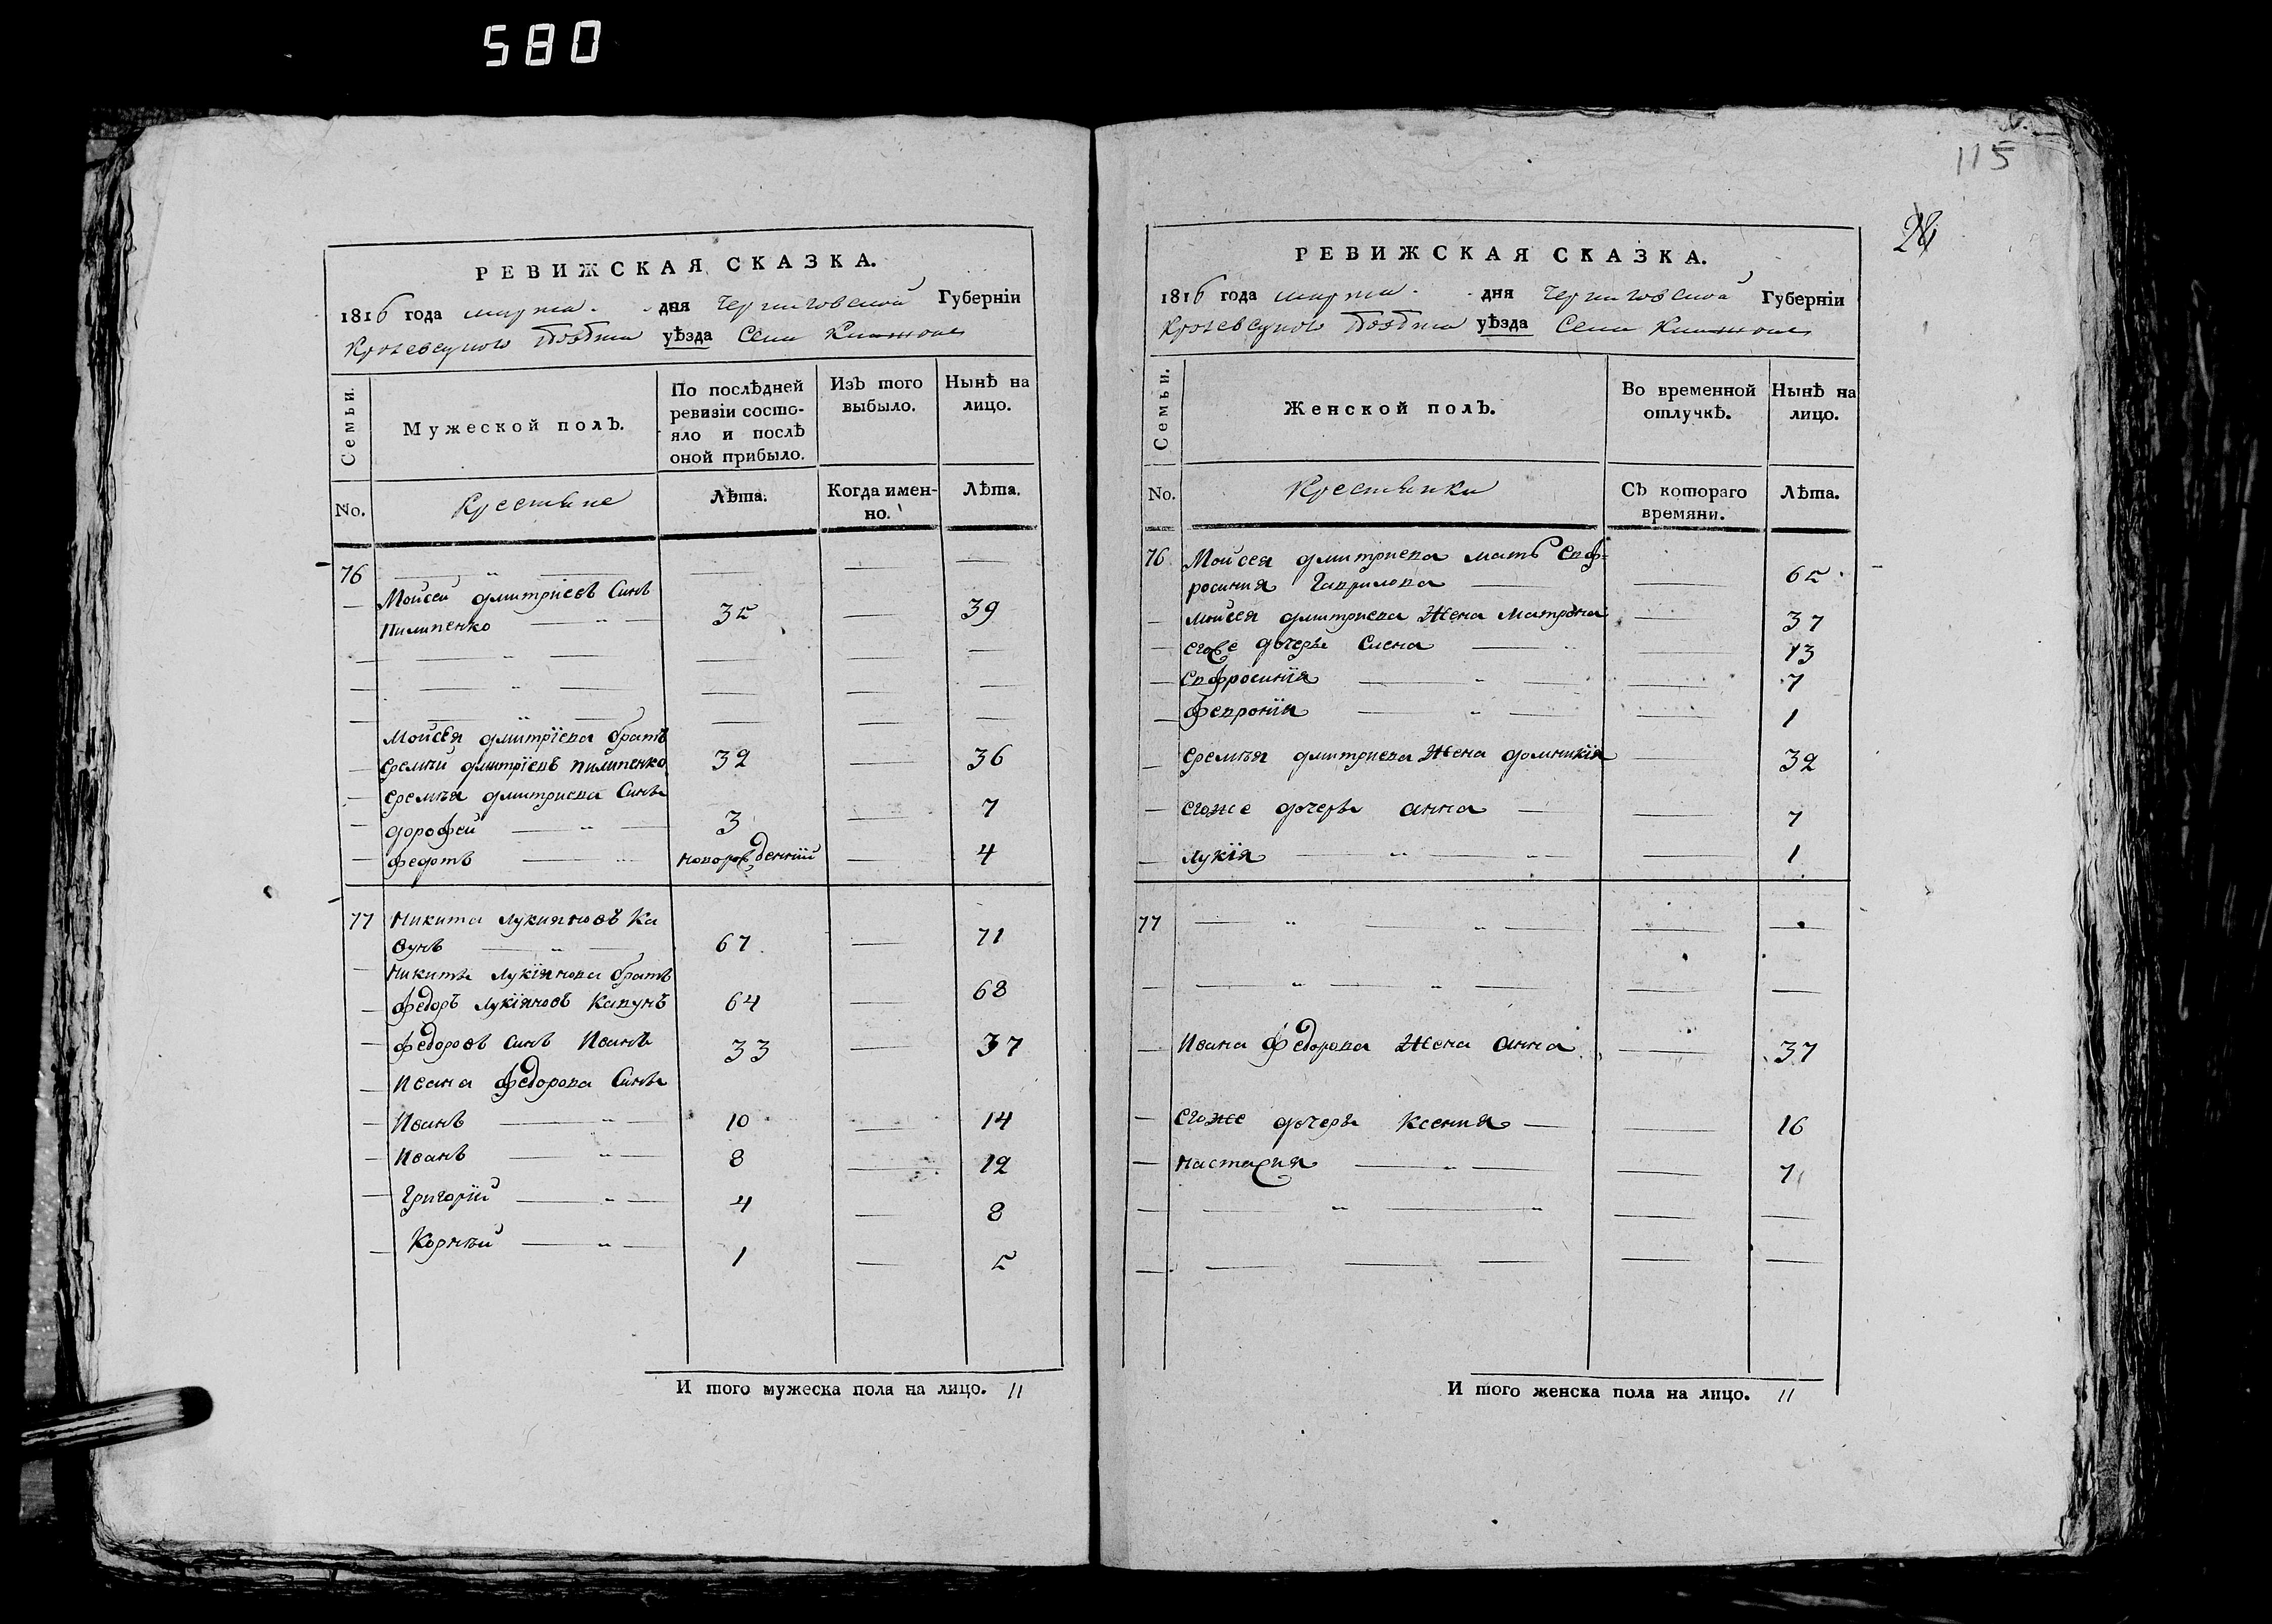 580
115
28
РЕВИЖСКАЯ СКАЗКА.
1816 года марта дня Черниговской Губерніи
Кролевецкого повѣта уѣзда Села
Семьи.
Мужеской полъ.
По послѣдней ревизіи состояло и послѣ оной прибыло.
Изъ того выбыло.
Нынѣ на лицо.
No.
Крестьяне
Лѣта.
Когда именно.
Лѣта.
76
Мойсей Дмитріевъ Синъ
Пилипенко 35 39
Мойсея Дмитріева братъ
Еремѣй Дмитріевъ Пилипенко 32 36
Еремѣя Дмитриева Синъ
Дорофей 3 7
Федотъ новорожденній 4
77 Никита Лукияновъ Ка
вунъ 67 71
Никиты Лукіянова братъ
Федоръ Лукіяновъ Кавунъ 64 68
Федоровъ синъ Иванъ 33 37
Ивана Федорова Синъ
Иванъ 10 14
Иванъ 8 12
Григорій 4 8
Корнѣй 1 5
И того мужеска пола на лицо. 11
РЕВИЖСКАЯ СКАЗКА.
1816 года марта дня Черниговской Губерніи
Кролевецкого повѣта уѣзда Села
Семьи.
Женской полъ.
Во временной отлучкѣ.
Нынѣ на лицо.
No.
Крестьянки
Съ котораго времяни.
Лѣта.
76 Мойсея Дмитриева мать Евф=
росиния Гаврилова 65
Мойсея Дмитриева Жена Матрона 37
егоже дочерь Елена 13
Евфросинія 7
Февронія 1
Еремѣя Дмитриева Жена Домникія 32
егоже дочерь Анна 7
Лукія 1
77
Ивана Федорова Жена Анна 37
егоже дочерь Ксения 16
Настасия 7
И того женска пола на лицо. 11